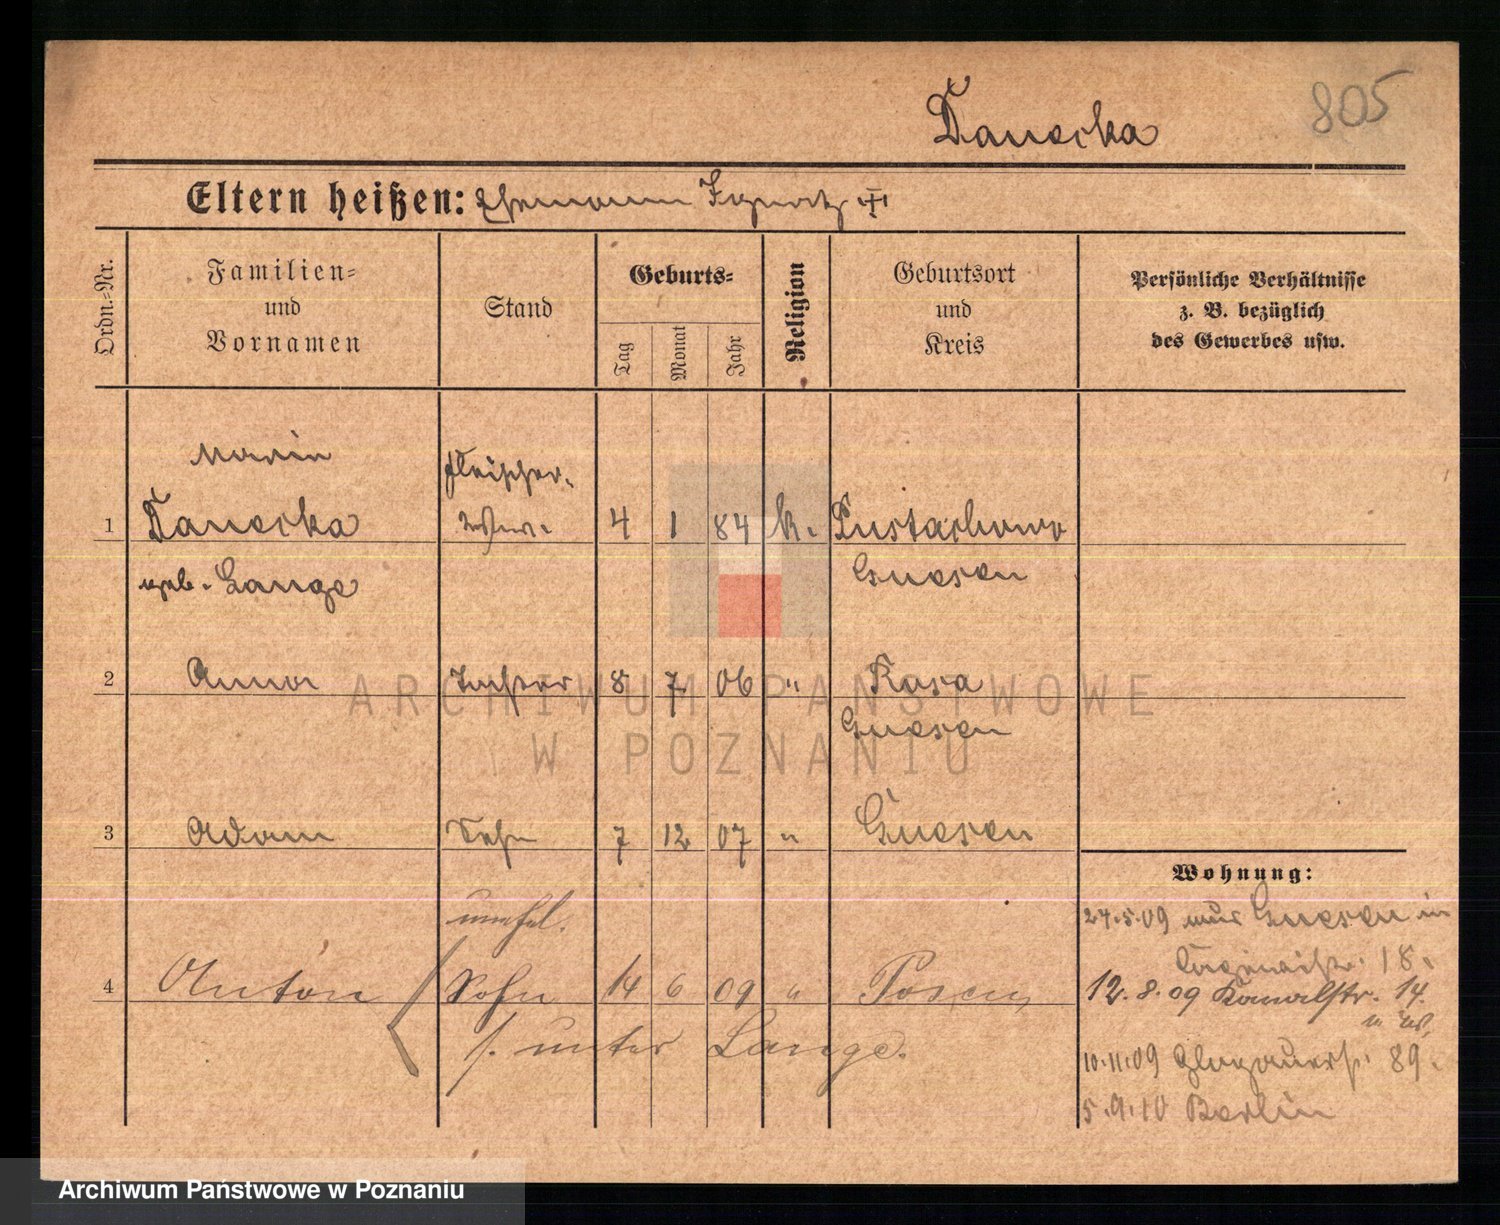 805
Danecka
Eltern heißen: Ehemann Ignatz
Ordn.-Nr.
Familien-
und
Vornamen
Stand
Geburts-
Tag
Monat
Jahr
Religion
Geburtsort
und
Kreis
Persönliche Verhältnisse
z. B. bezüglich
des Gewerbes usw.
Marie Fleischer-
1 Danecka Wwe. 4 1 84 k. Pustachowo
geb. Lange Gnesen
2 Anna Tochter 8 7 06 " Rosa
Gnesen
3 Adam Sohn 7 12 07 " Gnesen
Wohnung:
unehel.
24.5.09 aus Gnesen in
18.
4 Anton Sohn 14 6 09 " Posen
12.8.09 Kanalstr. 14.
s. unter Lange.
10.11.09 Glogauerstr. 89.
5.9.10 Berlin
ARCHIWUM PAŃSTWOWE
W POZNANIU
Archiwum Państwowe w Poznaniu